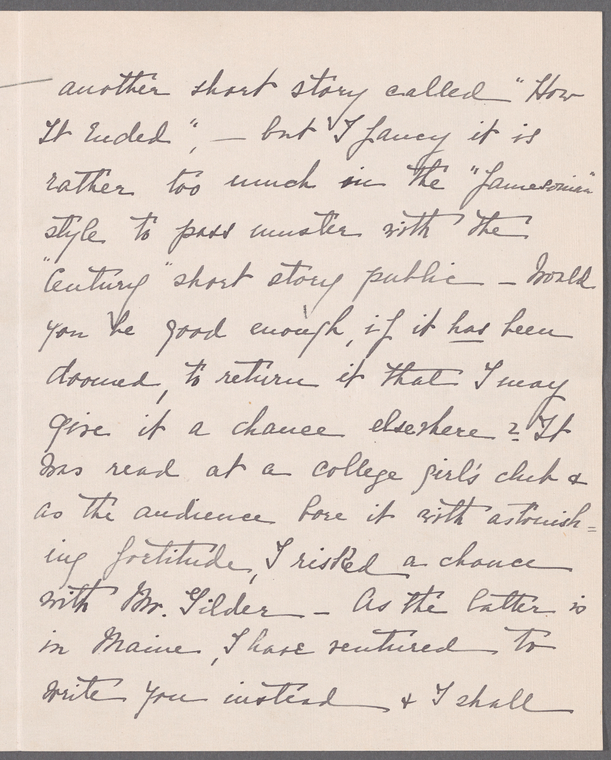 another short story called "How
It Ended", — but I fancy it is
rather too much in the "Jamesonian"
style to pass muster with the
"Century" short story public — Would
you be good enough, if it has been
doomed, to return it that I may
give it a chance elsewhere? It
was read at a college girl's club &
as the audience bore it with astonish=
ing fortitude, I risked a chance
with Mr. Gilder — As the latter is
in Maine, I have ventured to
write you instead & I shall